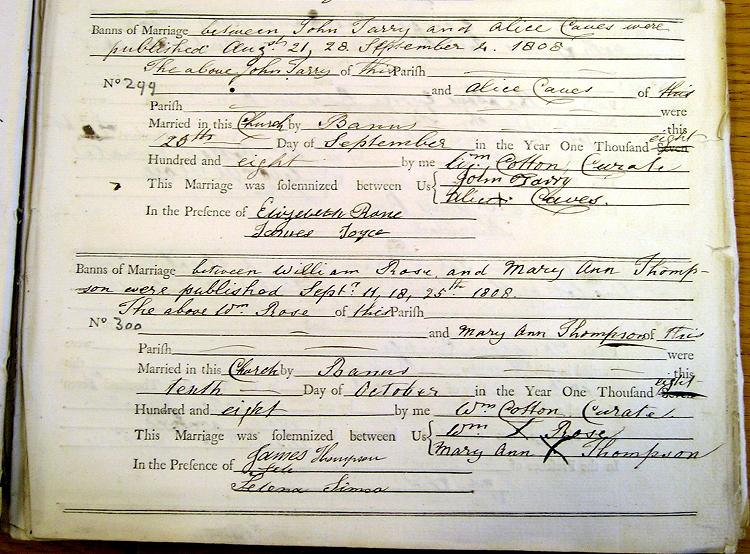 Banns of Marriage between John Tarry and Alice Caves were
published Augst 21, 28. September 4. 1808
The above John Tarry of this Parish
No 299 and Alice Caves of this
Parish were
Married in this Church by Banns this
25th Day of September in the Year One Thousand Seven eight
Hundred and eight by me Wm Cotton Curate
This Marriage was solemnized between Us John Tarry
Alice X Caves.
In the Presence of Elizabeth Rone
James Joyce
Banns of Marriage between William Rose and Mary Ann Thomp-
son were published Septr 11, 18, 25th 1808.
The above Wm Rose of this Parish
No 300 and Mary Ann Thompson of this
Parish were
Married in this Church by Banns this
tenth Day of October in the Year One Thousand Seven eight
Hundred and eight by me Wm Cotton Curate.
This Marriage was solemnized between Us Wm X Rose
Mary Ann X Thompson
In the Presence of James Thompson
Selena Simso